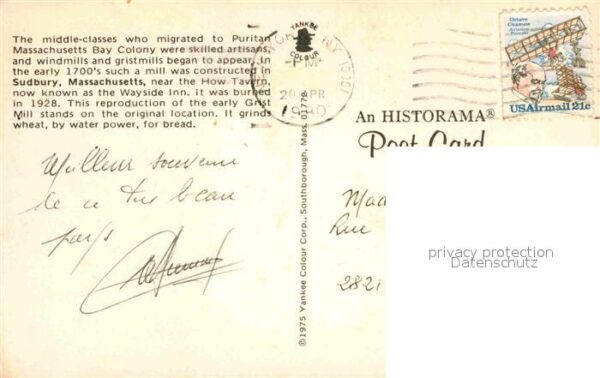 The middle-classes who migrated to Puritan
Massachusetts Bay Colony were skilled artisans,
and windmills and gristmills began to appear. In
the early 1700's such a mill was constructed in
Sudbury, Massachusetts, near the How Tavern,
now known as the Wayside Inn. it was burned
in 1928. This reproduction of the early Grist
Mill stands on the original location. It grinds
wheat, by water power, for bread.
Meilleur souvenir
de ce très beau
pays
YANKEE
COLOUR
©1975 Yankee Colour Corp., Southborough, Mass. 01772
NY
PM
20 APR
1980
Octave
Chanute
Aviation
Pioneer
USAirmail 21c
An HISTORAMA®
Post Card
Mad
Rue
2821
privacy protection
Datenschutz